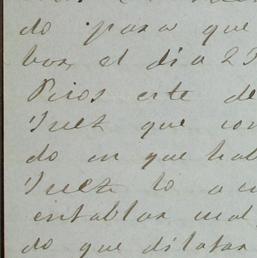 do para que
bor, el dia 25
Pisos este de
Juez que con
do en que hab
Juez lo a
entablar mal
do que dilatar